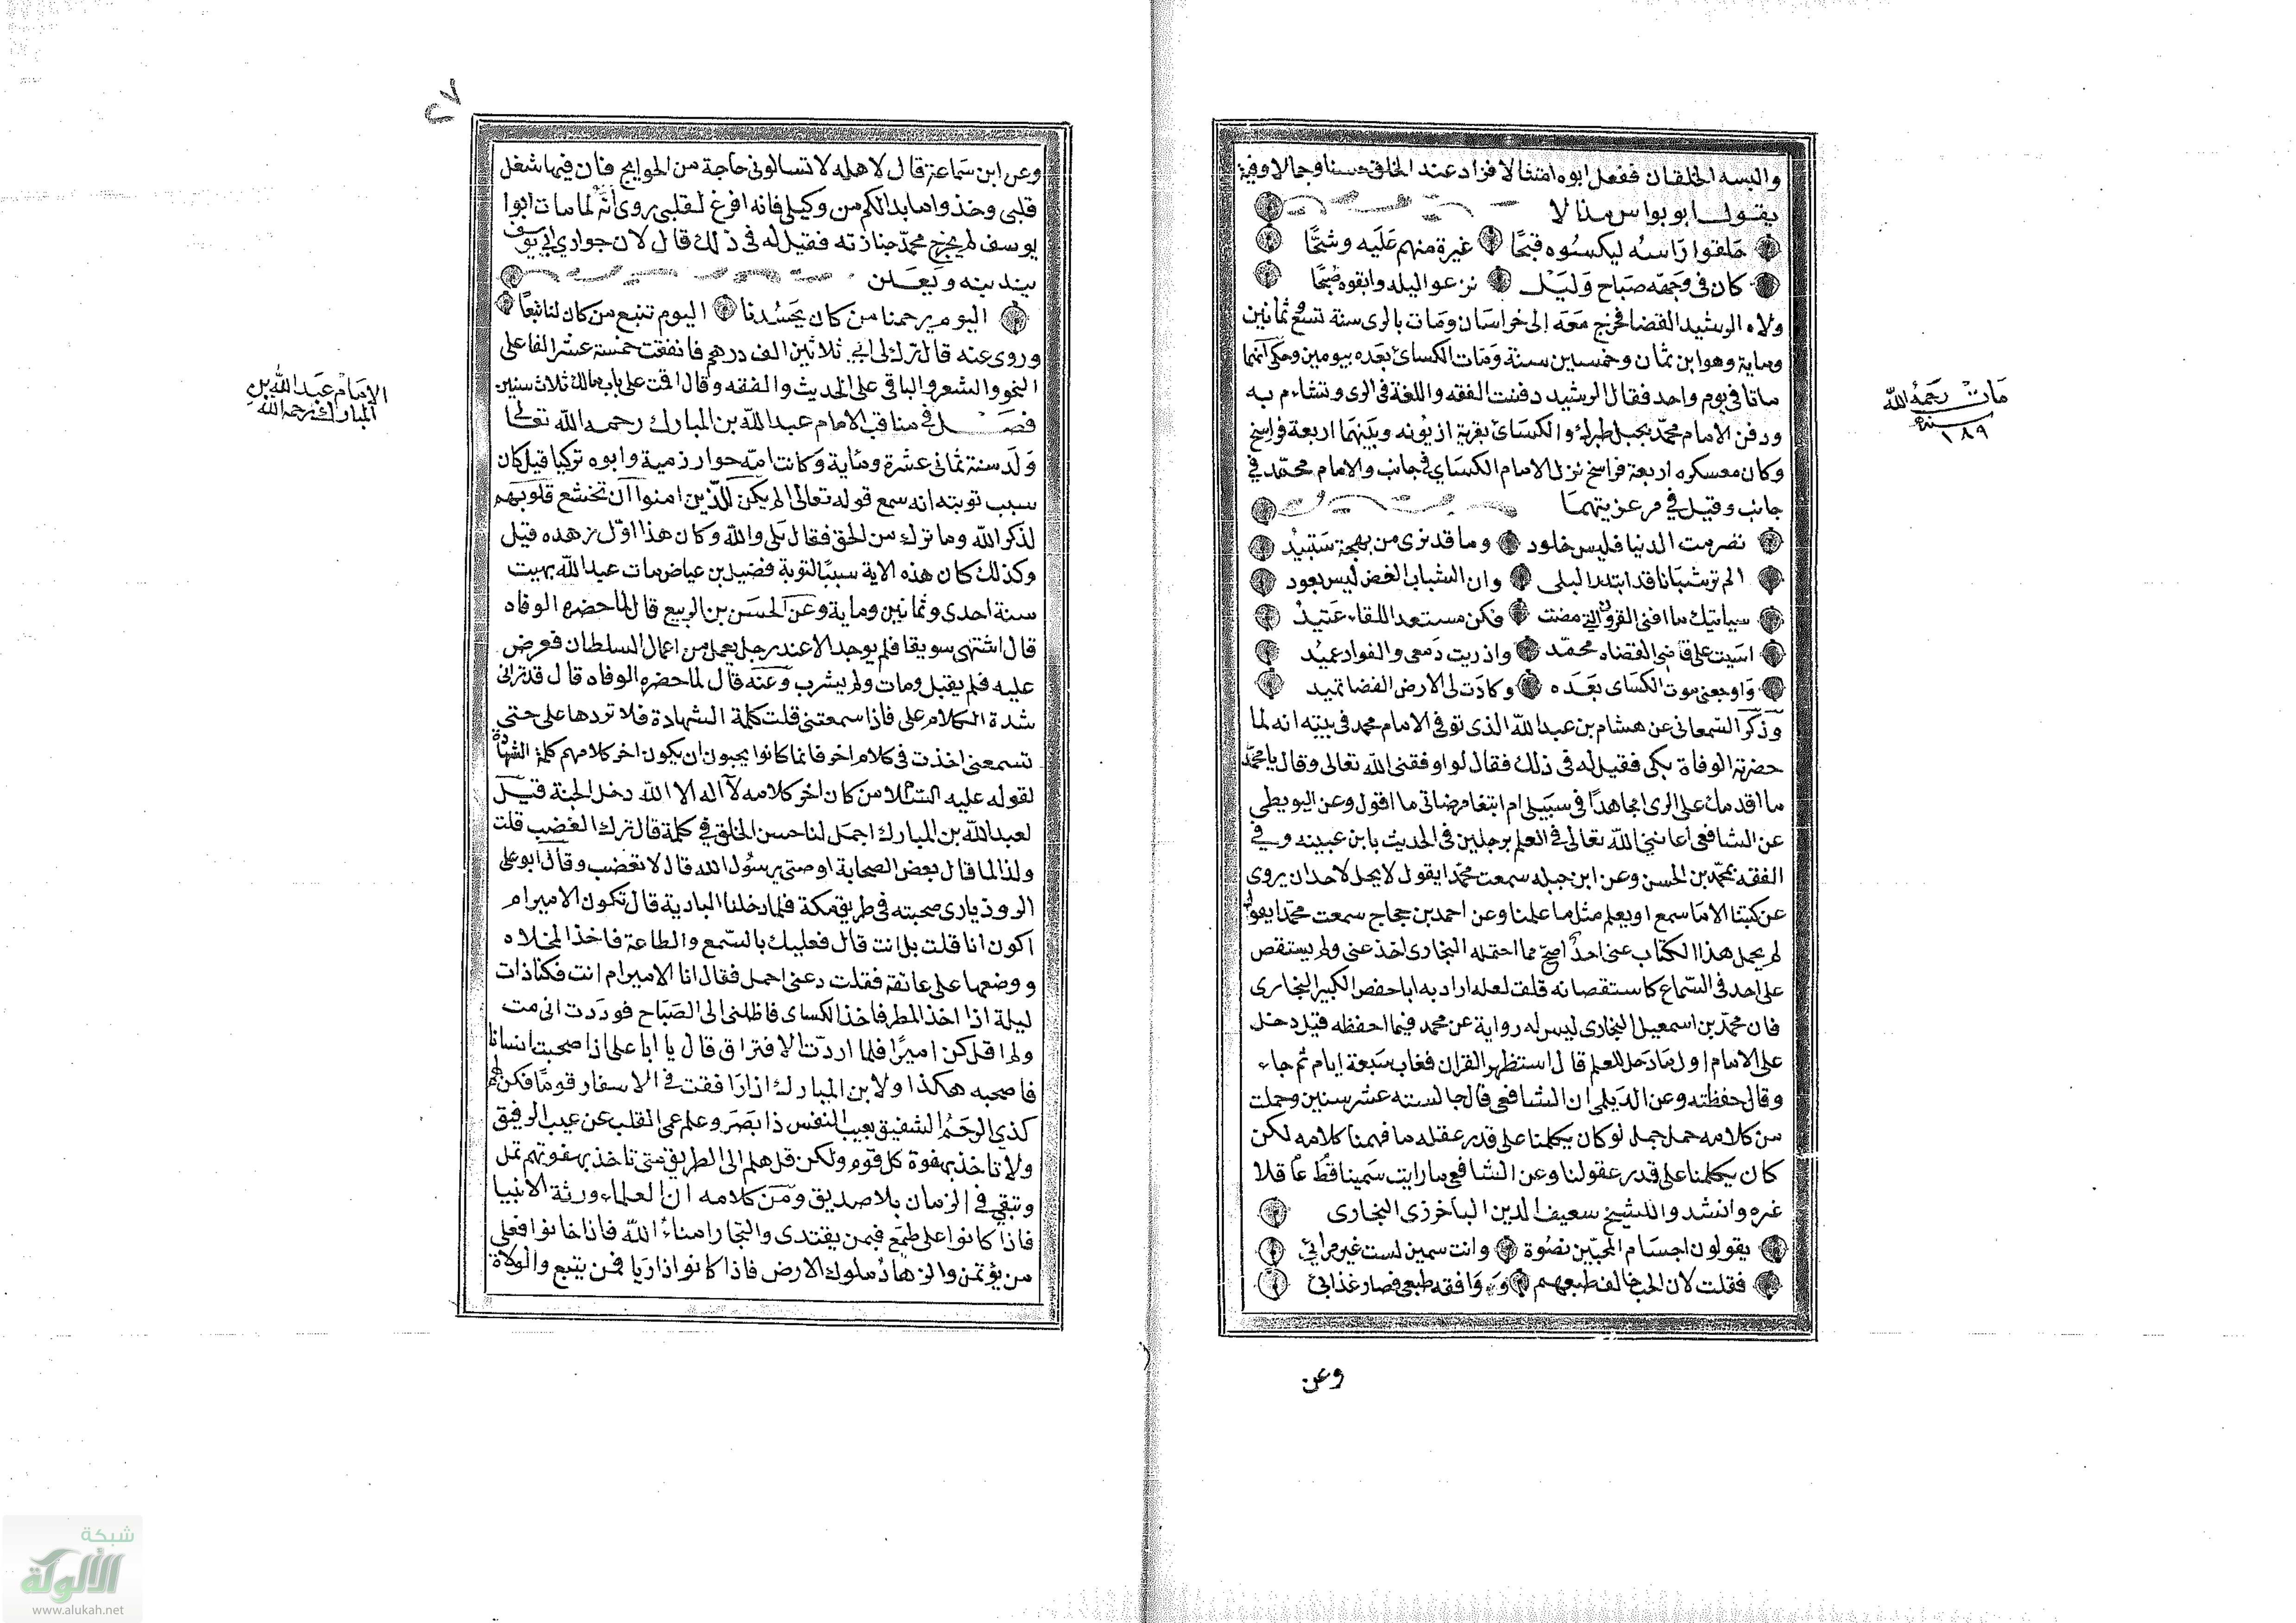 والبسه الخلقان ففعل ابوه امتثالا فزاد عند الخلق حسنا وجمالا وفيه
يقول ابو نواس منالا
حلقوا رَاسَه ليكسُوه قبحًا غيرة منهم عَلَيه وشحًّا
كان في وَجهه صَباح وَلَيْل نزعوا ليله وابقوه صُبحًا
ولاه الرشيد القضا فخرج مَعَه إلى خراسان ومَات بالرى سنة تسع وثمانين
وماية وهوا بن ثمان وخمسين سنة ومَات الكسائ بعَده بيومين وحكى انهما
ماتا في يوم واحد فقال الرشيد دفنت الفقه واللغة في الرى وتشاءم به
ودفن الامام محمّد بجبل طبرك والكسَائ بقرية ازنبونه وبَينهما اربعة فراسخ
وكان معسكره اربعة فراسخ نزل الامام الكسَاي في جانب والامام محمّد في
جانب وقيل في مرعزيتهما
تضرمت الدنيا فليس خلود وما قد نرى من بهجة سَتبيدُ
الم تر شيبَا ناقد ابتدر البلى وان الشباب الغض ليس يعود
سياتيك ما افنى القرون التي مضت فكن مستعد اللقاء عَتيدُ
اسَيت على قاضى القضاه محمّد واذريت دَمعى والفواد عميْد
وَاوجعنى موت الكسَاى بعَده وكادَت لى الارض الفضا تميد
وَذكرَ السّمعانى عن هشام بن عبد الله الذى توفي الامام محمد في بيته انه لما
حضرته الوفاة بكى فقيل له في ذلك فقال لو اوفقنى الله تعالى وقال يا محمّد
ما اقدمك على الرى امجاهدًا في سَبيلى ام ابتغا مرضاتى ما اقول وعن البويطى
عن الشافعى اعاننى الله تعالى في العلم برجلين في الحديث بابن عيينه وفي
الفقه بمحمّد بن الحسن وعن ابن جبله سمعت محمّدا يقول لا يحل لاحد ان يروى
عن كتبنا الا مَا سمع او يعلم مثل ما علمنا وعن احمد بن حجاج سمعت محمّدا يقول
لم يحمل هذا الكتاب عنى احدٌ اصحّ مما احتمله البخارى اخذ عنى ولم يستقص
على احد في السّماع كاستقصائه قلت لعله اراد به ابا حفص الكبير البخارى
فان محمّد بن اسمعيل البخارى ليس له رواية عن محمد فيما احفظه قيل دخل
على الامام اول مَا دَخل للعلم قال استظهر القران فغاب سَبعة ايام ثم جاء
وقال حفظته وعن الدّيلمى ان الشافعى قال جالسته عشر سنين وحملت
من كلامه حمل جمل لو كان يكلمنا على قدر عقله ما فهمنا كلامه لكن
كان يكلمنا على قدر عقولنا وعن الشافعى ما رايت سَمينا قطُ عَاقلا
غيره وانشدوا للشيخ سعيف الدين الباخرزى البخارى
يقولون اجسَام المحبّين نضوة وانت سمين لست غير مرائي
فقلت لان الحب خالف طبعهم ووَافقه طبعى فصار غذائي
وعن
مَاتَ رَحمَهُ الله
سنة
١٨٩
٢٧
وعن ابن سَماعة قال لاهله لا تسالونى حاجة من الحوايج فان فيها شغل
قلبى وخذوا ما بدالكم من وكيلى فانه افرغ لقلبى روى انّه لما مات ابوا
يوسف لم يخرج محمّد جنازته فقيل له في ذلك قال لان جوارى ابي يوسف
يندبنه ويَقلن
اليوم يرحمنا من كان يحَسُدنا اليوم تنبع من كان لنا تبعًا
وروى عنه قال ترك لى ابي ثلاثين الف درهم فانفقت خمسة عشر الفا على
النحو والشعر والباقى على الحديث والفقه وقال اقمت على باب مالك ثلاث سنين
فصَل في مناقب الامام عبد الله بن المبارك رحمه الله تعالى
وَلد سنة ثمانى عشرة ومئاية وكانت امّه حوارزمية وابوه تركيا قيل كان
سبب توبته انه سمع قوله تعالى الم يكن للذين امنوا ان تخشع قلوبهم
لذكر الله وما نزل من الحق فقال بَلى والله وكان هذا اوّل زهده قيل
وكذلك كان هذه الاية سببًا لتوبة فضيل بن عياض مات عبد الله بهيت
سنة احدى وثمانين وماية وعن الحسَن بن الربيع قال لما حضره الوفاه
قال اشتهى سويقا فلم يوجد الا عند رجل يعمل من اعمال السلطان فعرض
عليه فلم يقبل ومات ولم يشرب وعنه قال لما حضره الوفاه قال قد ترى
شدة الكلام على فاذا سمعتنى قلت كلمة الشهادة فلا تردها على حتى
تسمعنى اخذت في كلام اخر فانما كانوا يحبون ان يكون اخر كلامهم كلمة الشهادة
لقوله عليه السّلام من كان اخر كلامه لا اله الا الله دخل الجنة قيل
لعبد الله بن المبارك اجمَل لنا حسن الخلق في كلمة قال ترك الغضب قلت
ولذا لما قال بعض الصحابة اوصنى يرسُول الله قال لا تغضب وقال ابو على
الروذيارى صحبته في طريق مكة فلما دخلنا البادية قال تكون الامير ام
اكون انا قلت بل انت قال فعليك بالسّمع والطاعة فاخذ المخلاه
ووضعها على عاتقه فقلت دعنى احمل فقال انا الامير ام انت فكنا ذات
ليلة اذا اخذ المطر فاخذ الكساى فاظلنى الى الصَبَاح فودَدت انى مت
ولم اقل كن اميرًا فلما اردّت الافتراق قال يا ابا على اذا صحبت انسانا
فاصحبه هكذا ولابن المبارك اذا رَافقت في الاسفار قومًا فكن لهم
كذى الرحَمُ الشفيق بعيب النفس ذا بصَر وعلم عمى القلب عن عيب الرفيق
ولا تاخذ بهفوة كل قوم ولكن قل هلم الى الطريق متى تاخذ بهفوتهم تمل
وتبقى في الزمان بلا صديق ومَن كلامه ان العلماء ورثة الانبيا
فاذا كانوا على طمَع فبمن يقتدى والتجار امناءُ الله فاذا خانوا فعلى
من يؤتمن والزهادُ ملوك الارض فاذا كانوا ذا ريَا فمن يتبع والولاة
الامَامْ عبَد الله بن
المبارك رحمه الله
شبكة
الألوكة
www.alukah.net